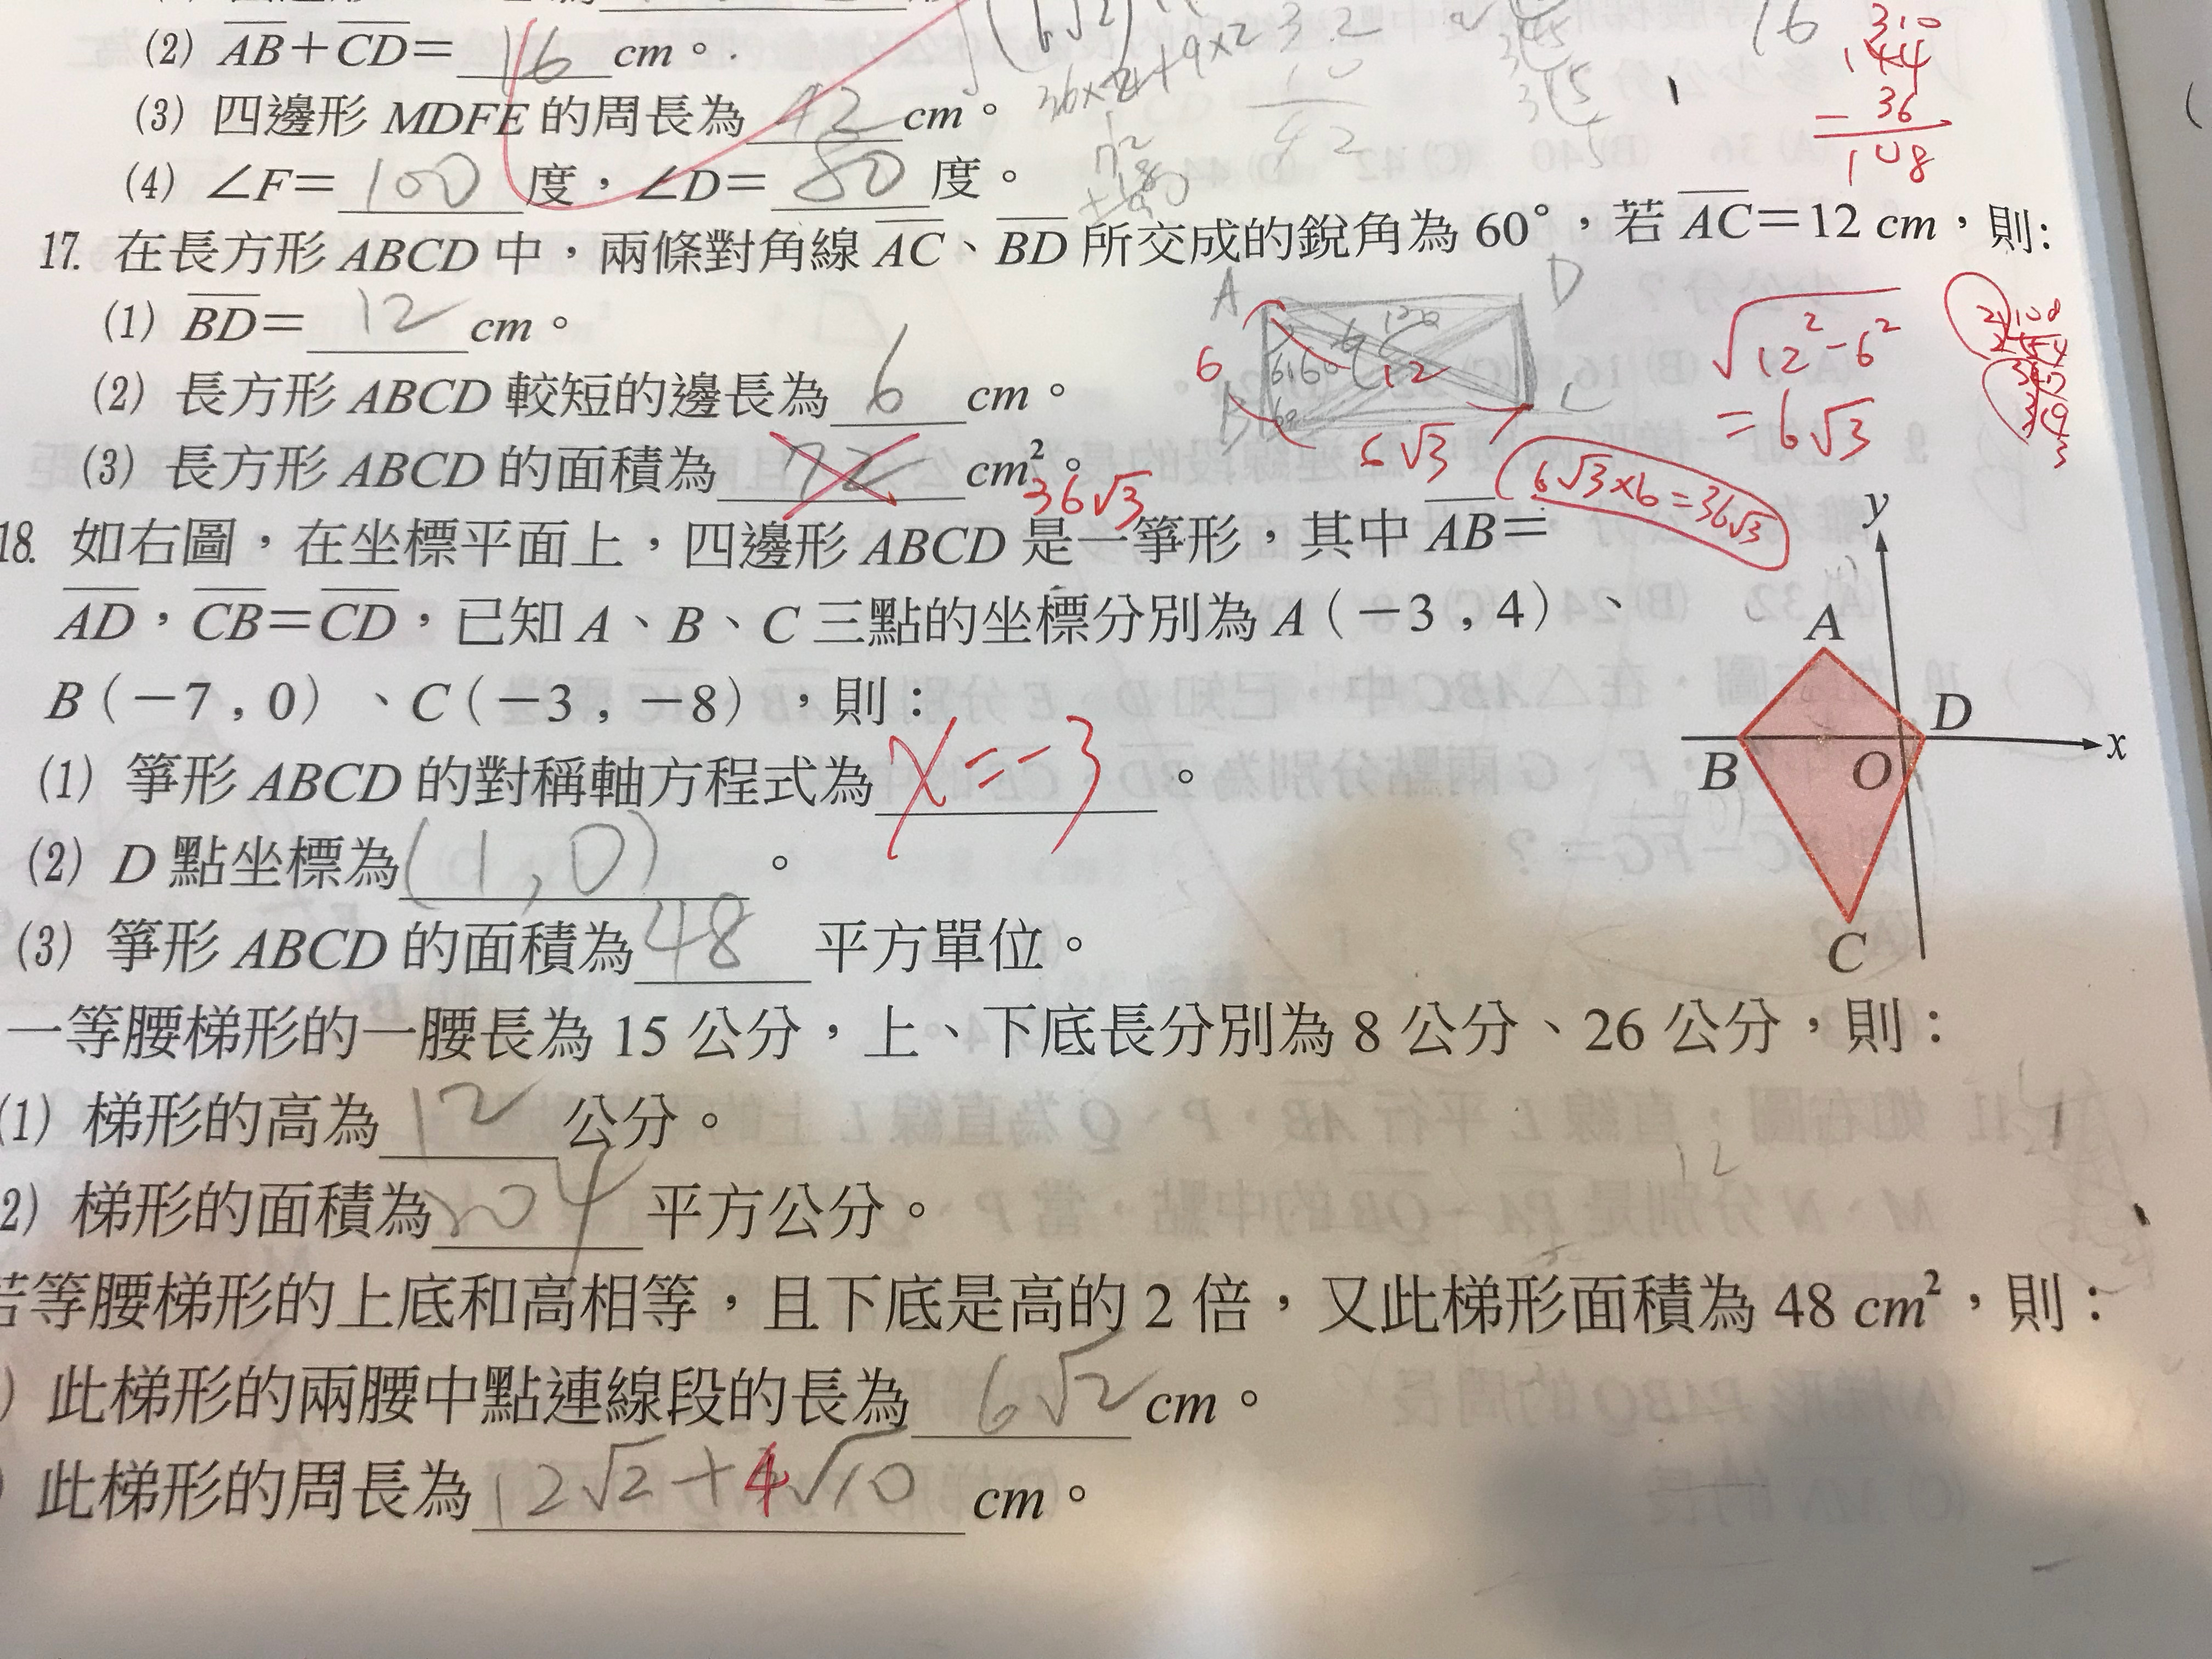 (2) AB+CD= 16 cm。
(3) 四邊形 MDFE 的周長為 42 cm。
(4) ∠F= 100 度，∠D= 80 度。
36×2+9×2
32
10
42
16
144
- 36
108
17. 在長方形 ABCD 中，兩條對角線 AC、BD 所交成的銳角為 60°，若 AC=12 cm，則:
(1) BD= 12 cm。
(2) 長方形 ABCD 較短的邊長為 6 cm。
(3) 長方形 ABCD 的面積為 72 cm²。
36√3
A D
6 12
B C
6√3
√12²-6²
=6√3
6√3×6=36√3
18. 如右圖，在坐標平面上，四邊形 ABCD 是一箏形，其中 AB=
AD，CB=CD，已知 A、B、C 三點的坐標分別為 A(-3,4)、
B(-7,0)、C(-3,-8)，則：
(1) 箏形 ABCD 的對稱軸方程式為 x=-3 。
(2) D 點坐標為 (1,0) 。
(3) 箏形 ABCD 的面積為 48 平方單位。
y
A
D
x
B
O
C
一等腰梯形的一腰長為 15 公分，上、下底長分別為 8 公分、26 公分，則：
(1) 梯形的高為 12 公分。
2) 梯形的面積為 204 平方公分。
若等腰梯形的上底和高相等，且下底是高的 2 倍，又此梯形面積為 48 cm²，則：
) 此梯形的兩腰中點連線段的長為 6√2 cm。
) 此梯形的周長為 12√2+4√10 cm。